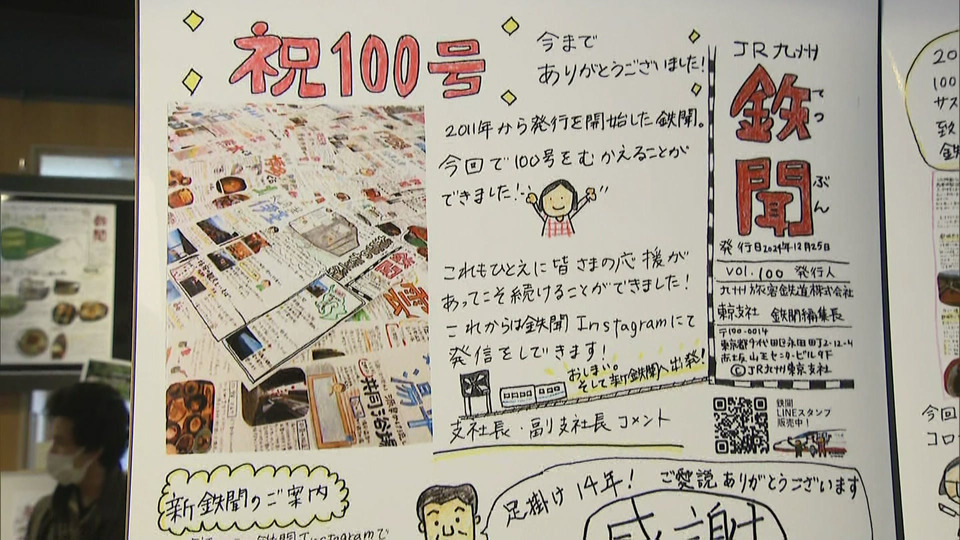 祝100号
今まで
ありがとうございました!
2011年から発行を開始した鉄聞。
今回で100号をむかえることが
できました!
これもひとえに皆さまの応援が
あってこそ続けることができました!
これからは鉄聞Instagramにて
発信をしてきます!
おしまい。
そして新鉄聞へ出発!
支社長・副支社長 コメント
JR九州
鉄聞
てつ
ぶん
発行日2024年12月25日
VOL.100 発行人
九州旅客鉄道株式会社
東京支社 鉄聞編集長
〒100-0014
東京都千代田区永田町2-12-4
赤坂山王センタービル9F
©JR九州東京支社
鉄聞
LINEスタンプ
販売中!
新鉄聞のご案内
鉄聞Instagramで
足掛け14年! ご愛読ありがとうございます
感謝
20
100
サス
致
鉄
今回
コロ